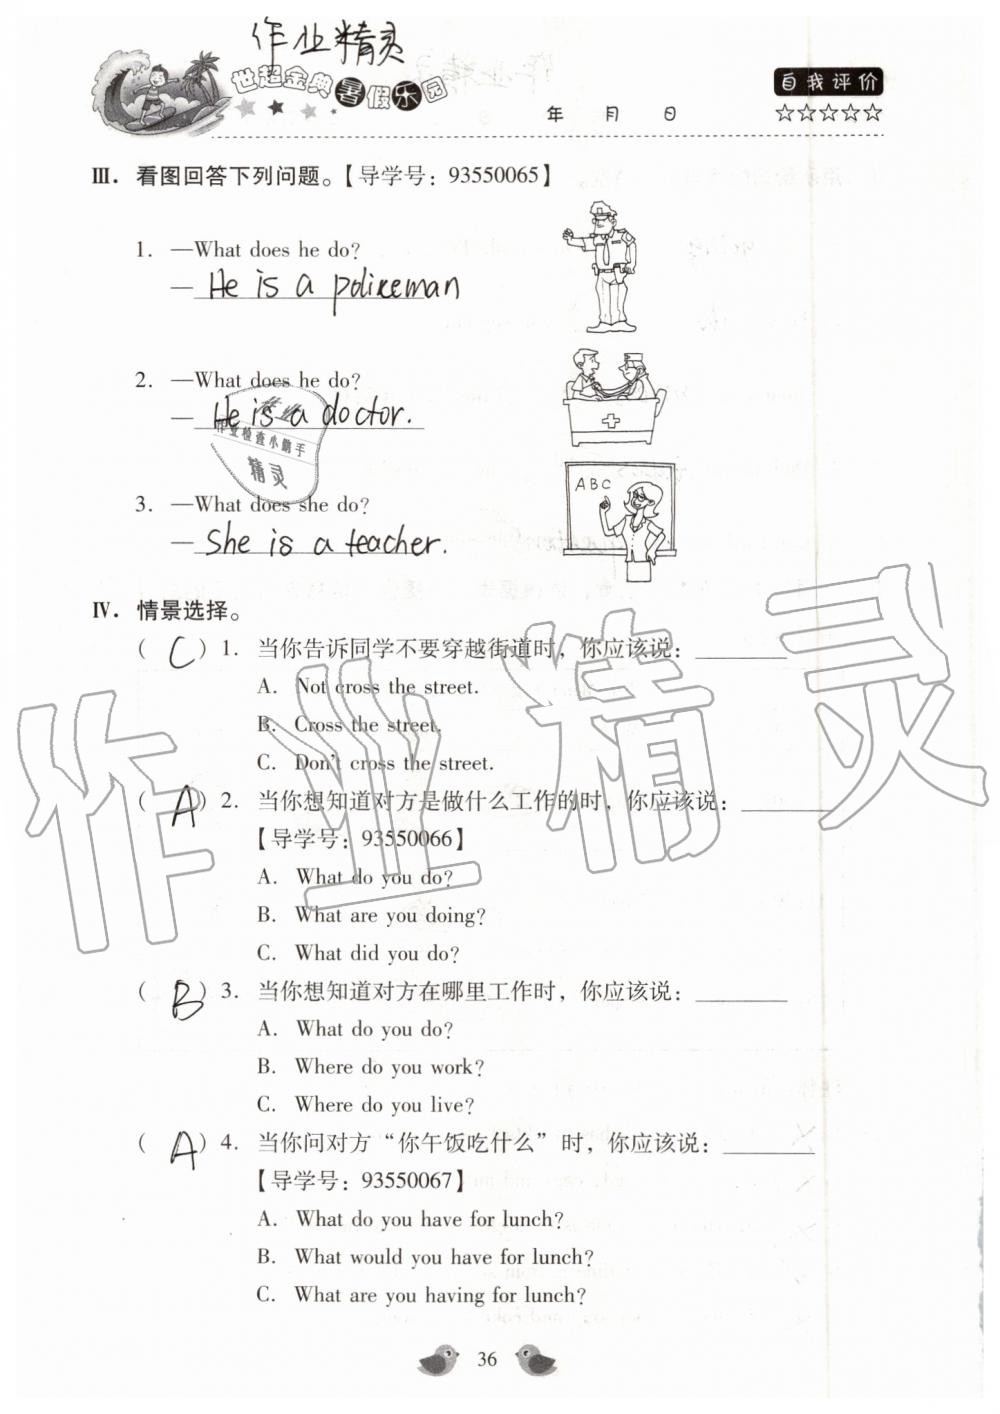 作业精灵
世超金典暑假乐园
年 月 日
自我评价
☆☆☆☆☆
Ⅲ. 看图回答下列问题。【导学号：93550065】
1. —What does he do?
— He is a policeman
2. —What does he do?
— He is a doctor.
作业
作业检查小助手
精灵
3. —What does she do?
— She is a teacher.
ABC
Ⅳ. 情景选择。
( C ) 1. 当你告诉同学不要穿越街道时，你应该说：________
A. Not cross the street.
B. Cross the street.
C. Don't cross the street.
( A ) 2. 当你想知道对方是做什么工作的时，你应该说：________
【导学号：93550066】
A. What do you do?
B. What are you doing?
C. What did you do?
( B ) 3. 当你想知道对方在哪里工作时，你应该说：________
A. What do you do?
B. Where do you work?
C. Where do you live?
( A ) 4. 当你问对方“你午饭吃什么”时，你应该说：________
【导学号：93550067】
A. What do you have for lunch?
B. What would you have for lunch?
C. What are you having for lunch?
作业精灵
36